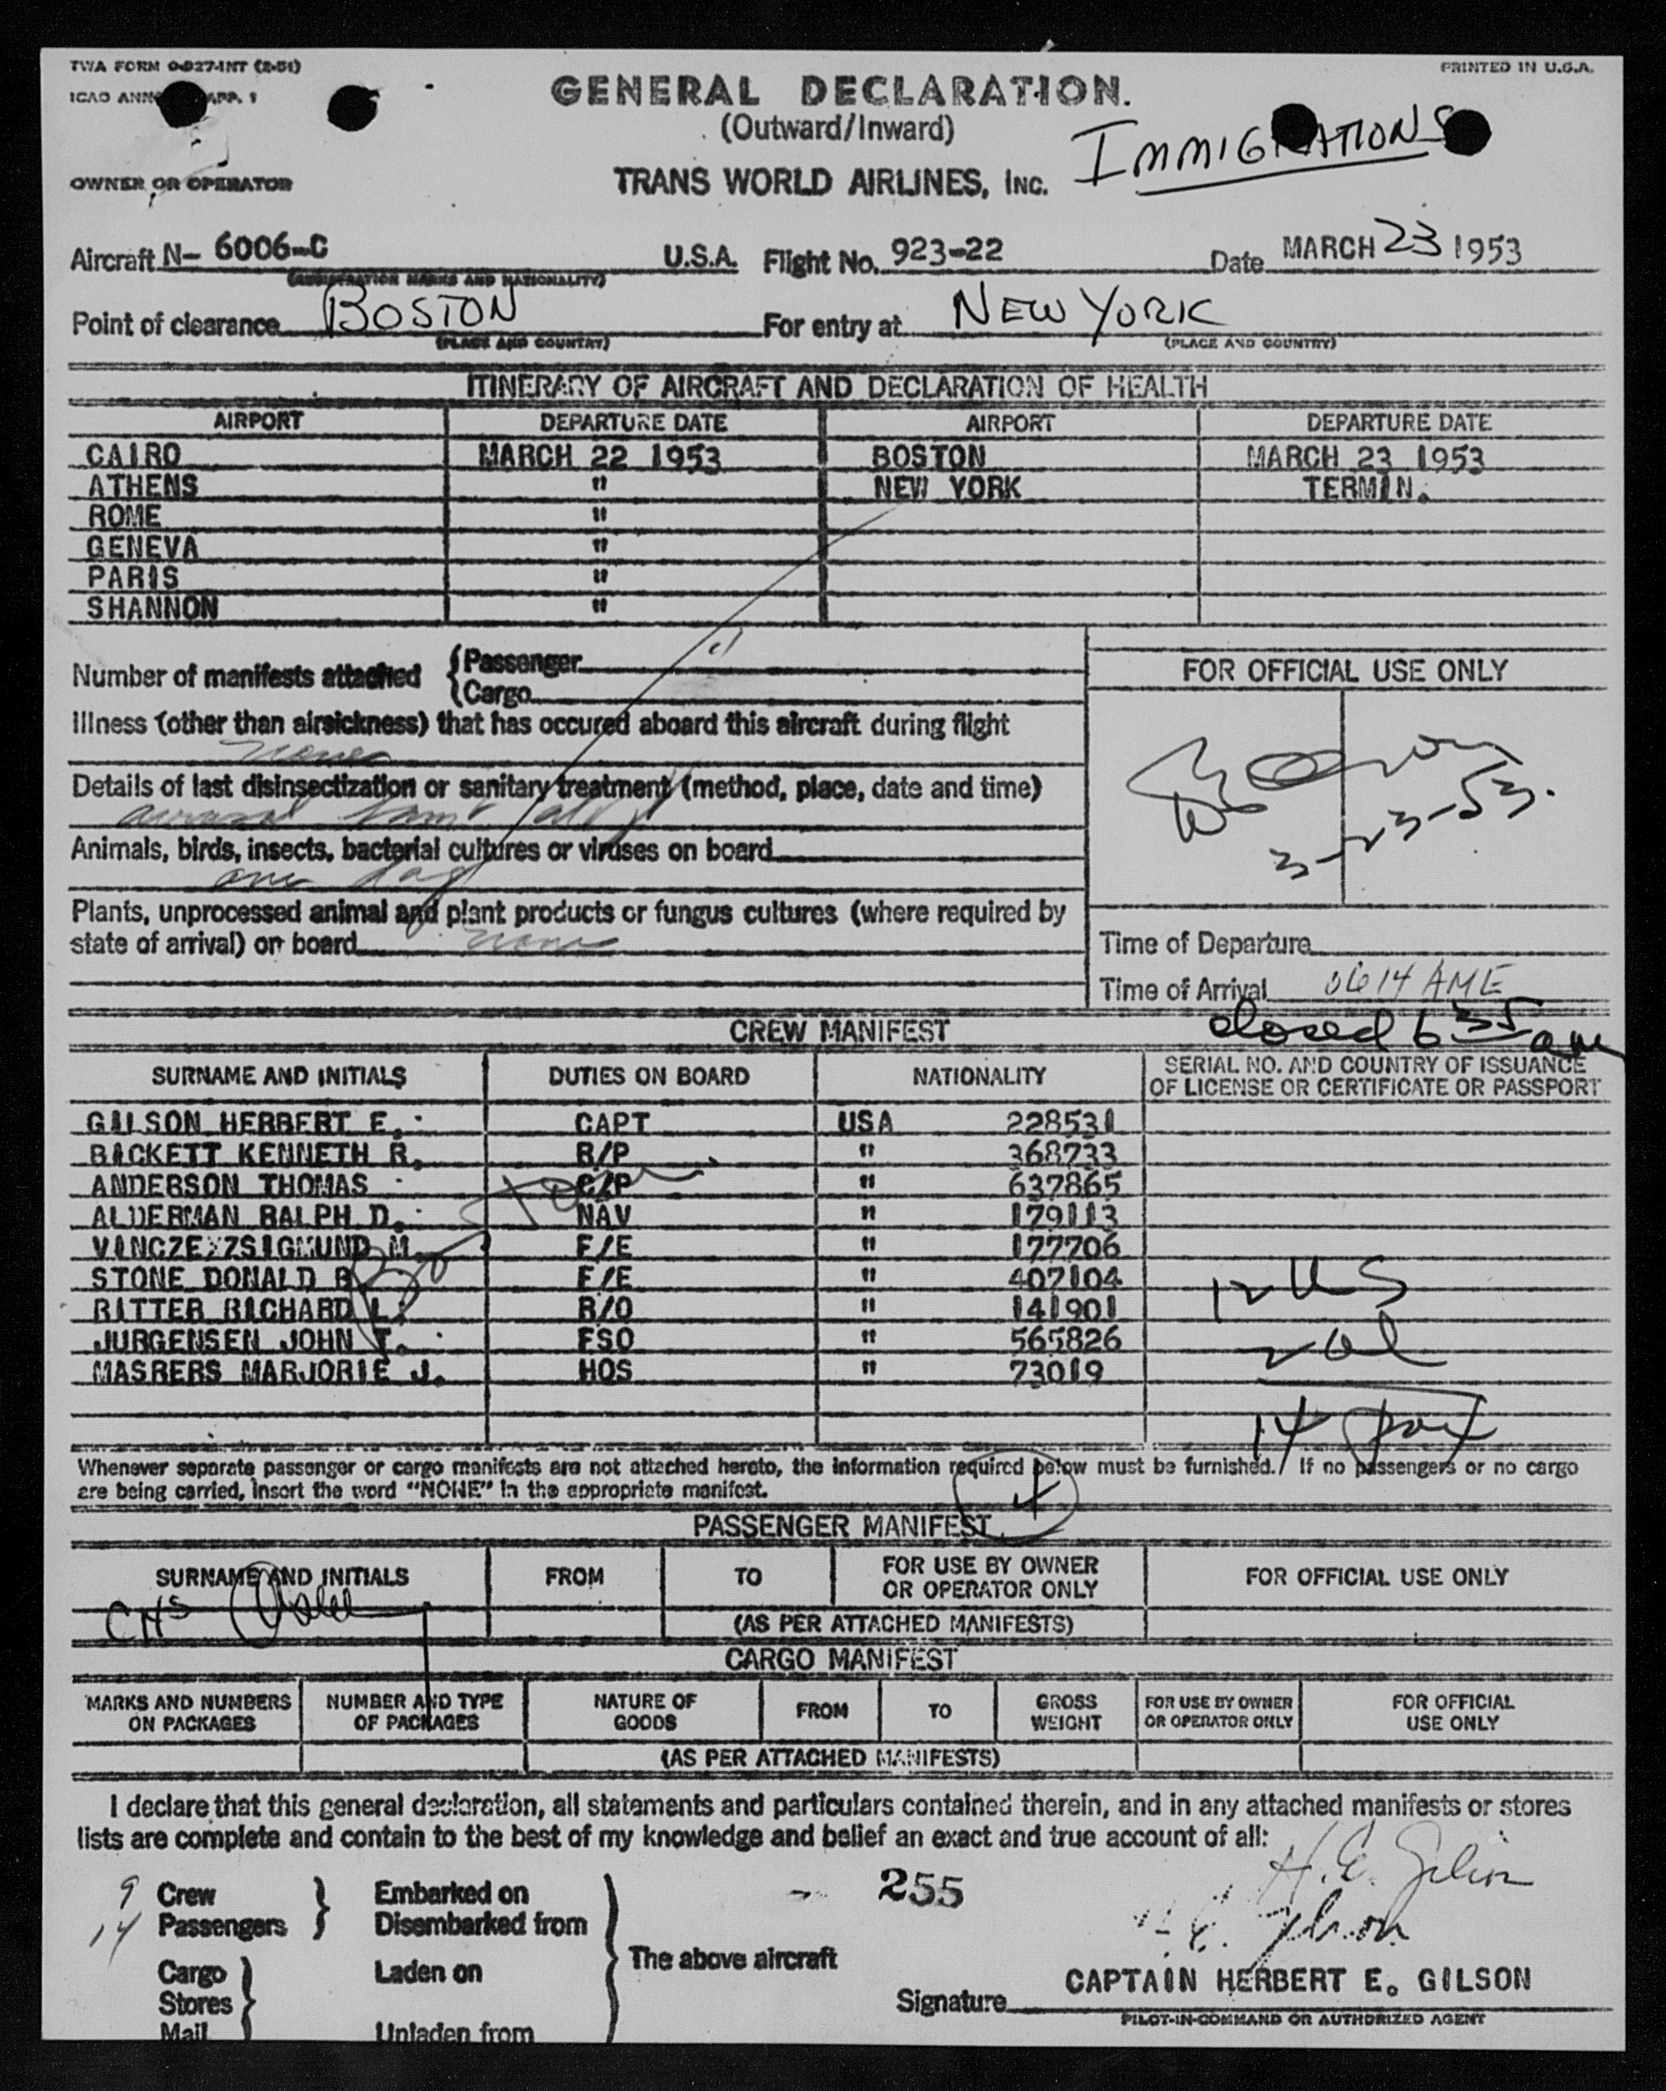 TWA FORM O-927-INT (2-51)
PRINTED IN U.S.A.
ICAO APP. 1
GENERAL DECLARATION.
(Outward/Inward)
IMMIGRATIONS
OWNER OR OPERATOR
TRANS WORLD AIRLINES, INC.
Aircraft N- 6006-C U.S.A. Flight No. 923-22 Date MARCH 23 1953
(REGISTRATION MARKS AND NATIONALITY)
Point of clearance BOSTON For entry at NEW YORK
(PLACE AND COUNTRY) (PLACE AND COUNTRY)
ITINERARY OF AIRCRAFT AND DECLARATION OF HEALTH
AIRPORT DEPARTURE DATE AIRPORT DEPARTURE DATE
CAIRO MARCH 22 1953 BOSTON MARCH 23 1953
ATHENS " NEW YORK TERMIN.
ROME "
GENEVA "
PARIS "
SHANNON "
Number of manifests attached (Passenger
(Cargo
FOR OFFICIAL USE ONLY
Illness (other than airsickness) that has occured aboard this aircraft during flight
none
Details of last disinsectization or sanitary treatment (method, place, date and time)
3-23-53.
Animals, birds, insects, bacterial cultures or viruses on board
one dog
Plants, unprocessed animal and plant products or fungus cultures (where required by
state of arrival) on board none
Time of Departure
Time of Arrival 0614 AME
closed 6 35 am
CREW MANIFEST
SURNAME AND INITIALS DUTIES ON BOARD NATIONALITY SERIAL NO. AND COUNTRY OF ISSUANCE
OF LICENSE OR CERTIFICATE OR PASSPORT
GILSON HERBERT E. CAPT USA 228531
BACKETT KENNETH R. R/P " 368733
ANDERSON THOMAS C/P " 637865
ALDERMAN RALPH D. NAV " 179113
VINCZE ZSIGMUND M. F/E " 177706
STONE DONALD R F/E " 407104
RITTER RICHARD L. R/O " 141901
JURGENSEN JOHN T. FSO " 565826
MASBERS MARJORIE J. HOS " 73019
12 US
2 al
14 pax
Whenever separate passenger or cargo manifests are not attached hereto, the information required below must be furnished. If no passengers or no cargo
are being carried, insert the word "NONE" in the appropriate manifest.
4
PASSENGER MANIFEST
SURNAME AND INITIALS FROM TO FOR USE BY OWNER
OR OPERATOR ONLY FOR OFFICIAL USE ONLY
(AS PER ATTACHED MANIFESTS)
CARGO MANIFEST
MARKS AND NUMBERS
ON PACKAGES NUMBER AND TYPE
OF PACKAGES NATURE OF
GOODS FROM TO GROSS
WEIGHT FOR USE BY OWNER
OR OPERATOR ONLY FOR OFFICIAL
USE ONLY
(AS PER ATTACHED MANIFESTS)
I declare that this general declaration, all statements and particulars contained therein, and in any attached manifests or stores
lists are complete and contain to the best of my knowledge and belief an exact and true account of all:
H. E. Gilson
9 Crew Embarked on 255
14 Passengers Disembarked from
H. E. Gilson
The above aircraft
Cargo Laden on
CAPTAIN HERBERT E. GILSON
Stores
Signature
PILOT-IN-COMMAND OR AUTHORIZED AGENT
Mail Unladen from